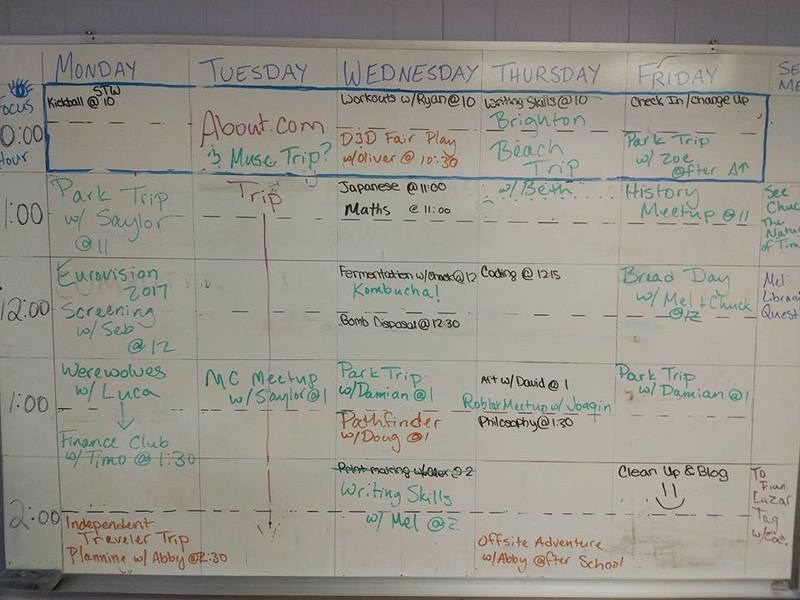 MONDAY
TUESDAY
WEDNESDAY
THURSDAY
FRIDAY
Focus
Hour
0:00
STW
Kickball @ 10
About.com
& Muse Trip?
Workouts w/Ryan @ 10
D&D Fair Play
w/Oliver @ 10:30
Writing Skills @ 10
Brighton
Beach
Trip
w/ Beth
Check In/Change Up
Park Trip
w/ Zoe
@fter
1:00
Park Trip
w/ Saylor
@ 11
Trip
Japanese @ 11:00
Maths @ 11:00
History
Meetup @ 11
See
Chuck
The
Nature
of Time
12:00
Eurovision
2017
Screening
w/ Seb
@ 12
Fermentation w/Chuck @ 12
Kombucha!
Bomb Disposal @ 12:30
Coding @ 12:15
Bread Day
w/ Mel + Chuck
@ 12
Mel:
Library
Quest
1:00
Werewolves
w/ Luca
Finance Club
w/ Timo @ 1:30
MC Meetup
w/ Saylor @ 1
Park Trip
w/ Damian @ 1
Pathfinder
w/ Doug @ 1
Art w/ David @ 1
Roblox Meetup w/ Joaqin
Philosophy @ 1:30
Park Trip
w/ Damian @ 1
2:00
Independent
Traveler Trip
Planning w/ Abby @ 2:30
Print making w/Alex @ 2
Writing Skills
w/ Mel @ 2
Offsite Adventure
w/ Abby @fter School
Clean Up & Blog
To
Lazar
Tag
w/ Zoe.